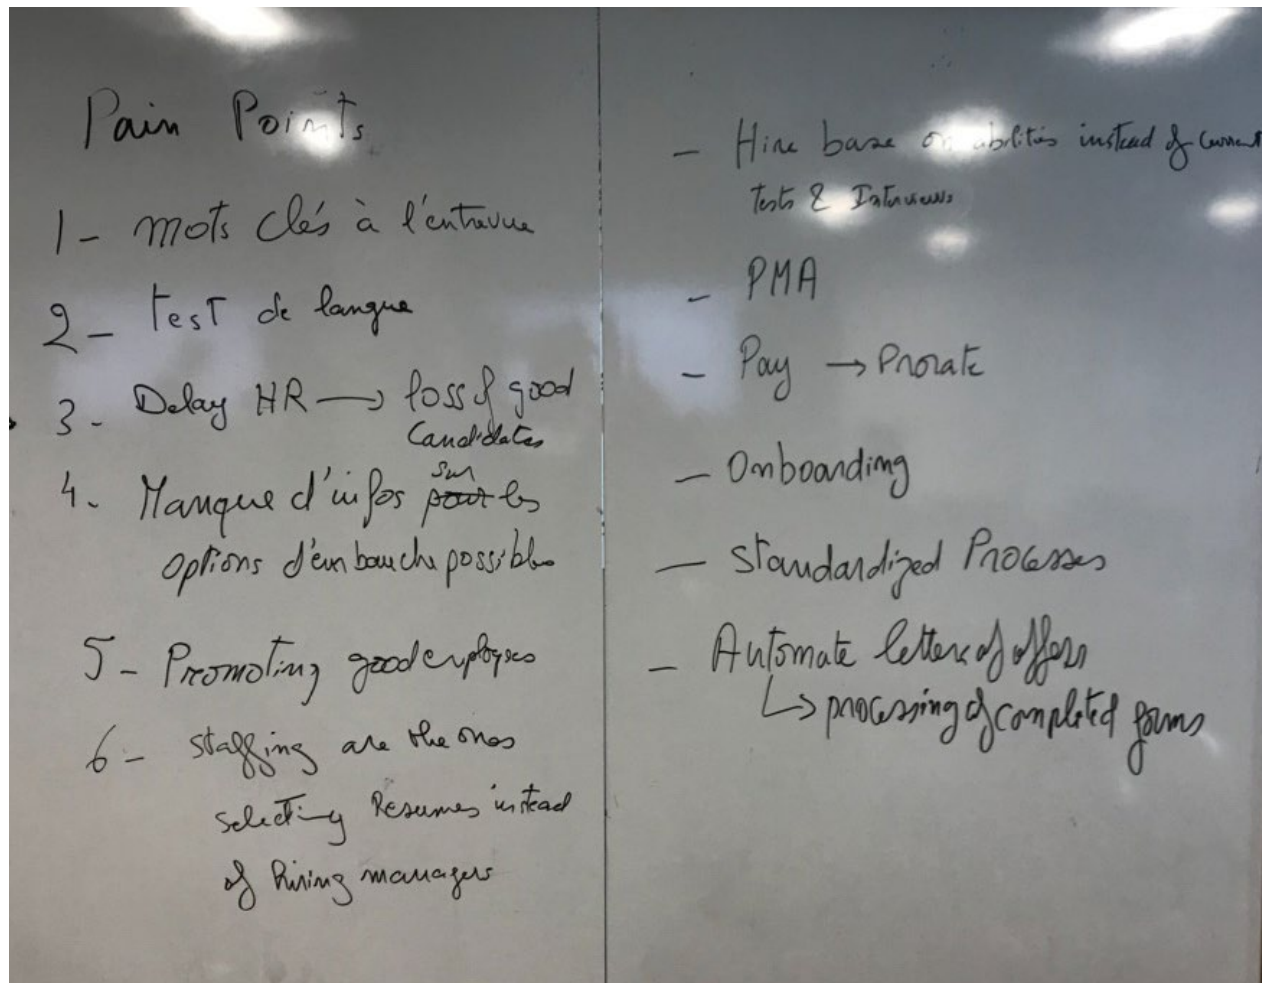 Pain Points
1- mots clés à l'entrevue
2- test de langue
3- Delay HR → loss of good
candidates
4- Manque d'infos sur les
options d'embauche possibles
5- Promoting good employees
6- staffing are the ones
selecting Resumes instead
of hiring managers
- Hire base on abilities instead of current
tests & Interviews
- PMA
- Pay → Prorate
- Onboarding
- Standardized Processes
- Automate letters of offers
↳ processing of completed forms